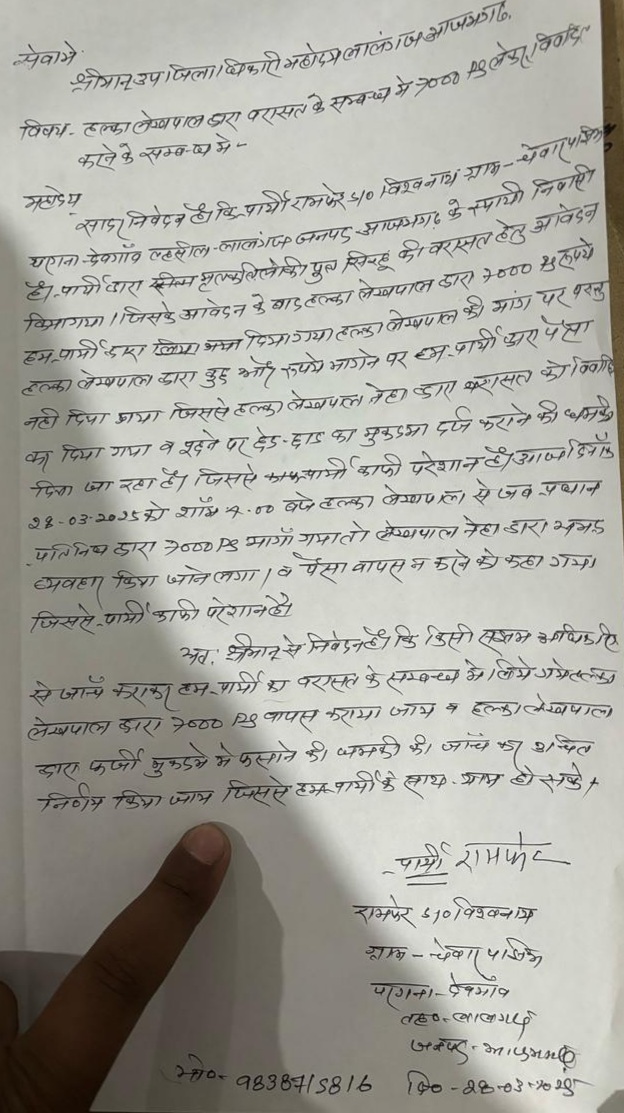 सेवामे
श्रीमान् उप जिलाधिकारी महोदय लालगंज आजमगढ़
विषय- हल्का लेखपाल द्वारा वरासत के सम्बन्ध मे 7000 RS लेकर विवादित
करने के सम्बन्ध मे -
महोदय
सादर निवेदन है कि प्रार्थी रामफेर S/O विश्वनाथ ग्राम - चेवार पश्चिम
परगना - देवगाँव तहसील - लालगंज जनपद आजमगढ़ के स्थायी निवासी
है। प्रार्थी द्वारा की वरासत हेतु आवेदन
किया गया। जिसके आवेदन के बाद हल्का लेखपाल द्वारा 7000 RS रूपये
हम प्रार्थी द्वारा दिया गया हल्का लेखपाल की मांग पर परन्तु
हल्का लेखपाल द्वारा कुछ और रूपये मागने पर हम प्रार्थी द्वारा पैसा
नही दिया गया जिससे हल्का लेखपाल नेहा द्वारा वरासत को विवादित
कर दिया गया व पूछने पर छेड़-छाड़ का मुकदमा दर्ज कराने की धमकी
दिया जा रहा है। जिससे प्रार्थी काफी परेशान है। आज दिनाँक
28-03-2025 को शाँम 4.00 बजे हल्का लेखपाल से जब प्रधान
प्रतिनिधि द्वारा 7000 RS मागाँ गया तो लेखपाल नेहा द्वारा अभद्र
व्यवहार किया जाने लगा। व पैसा वापस न करने को कहा गया।
जिससे प्रार्थी काफी परेशान है।
अतः श्रीमान् से निवेदन है कि किसी सक्षम अधिकारी
से जाँच कराकर हम प्रार्थी का वरासत के सम्बन्ध मे लिये गये हल्का
लेखपाल द्वारा 7000 RS वापस कराया जाय व हल्का लेखपाल
द्वारा फर्जी मुकदमे मे फसाने की धमकी की जाँच कर उचित
निर्णय किया जाय जिससे हम प्रार्थी के साथ न्याय हो सके।
प्रार्थी रामफेर
रामफेर S/O विश्वनाथ
ग्राम - चेवार पश्चिम
परगना - देवगाँव
तह०- लालगंज
जनपद - आजमगढ़
मो०- 9838715816 दि०-28-03-2025